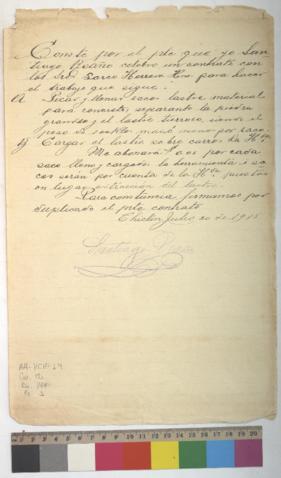 Consta por el pte que yo San
tiago celebro un contrato con
los Srs. Larco Herrera Hos. para hacer
el trabajo que sigue.
A Picar y llenar sacos lastre material
para concreto, separando la piedra
grande y el lastre siendo el
peso de mas o menos por saco
B) Cargar el lastre sobre carros de Hda.
Me abonarán por cada
saco lleno y cargado. La herramienta i sa
cos serán por cuenta de la Hda. puestos
en lugar extracción del lastre.
Para constancia firmamos por
duplicado el pte contrato
Chiclin, Julio 20 de 1915
Santiago
AA-HCH-14